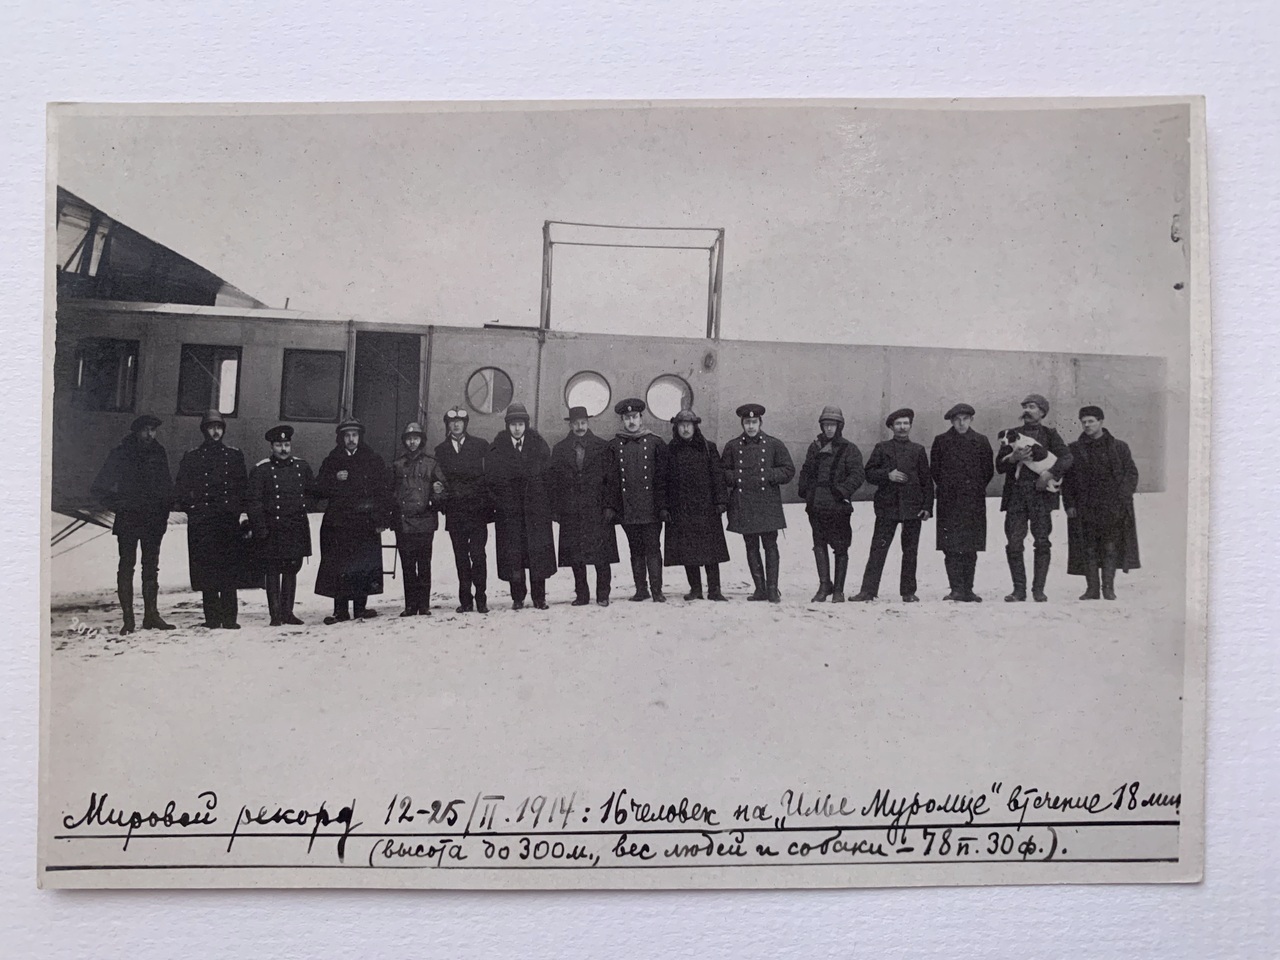 Мировой рекорд 12-25/II.1914: 16 человек на „Илье Муромце" в течение 18 мин.
(высота до 300 м., вес людей и собаки - 78 п. 30 ф.).